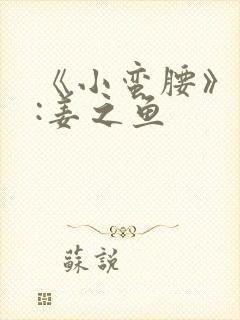 《小蛮腰》
:姜之鱼
蘇說